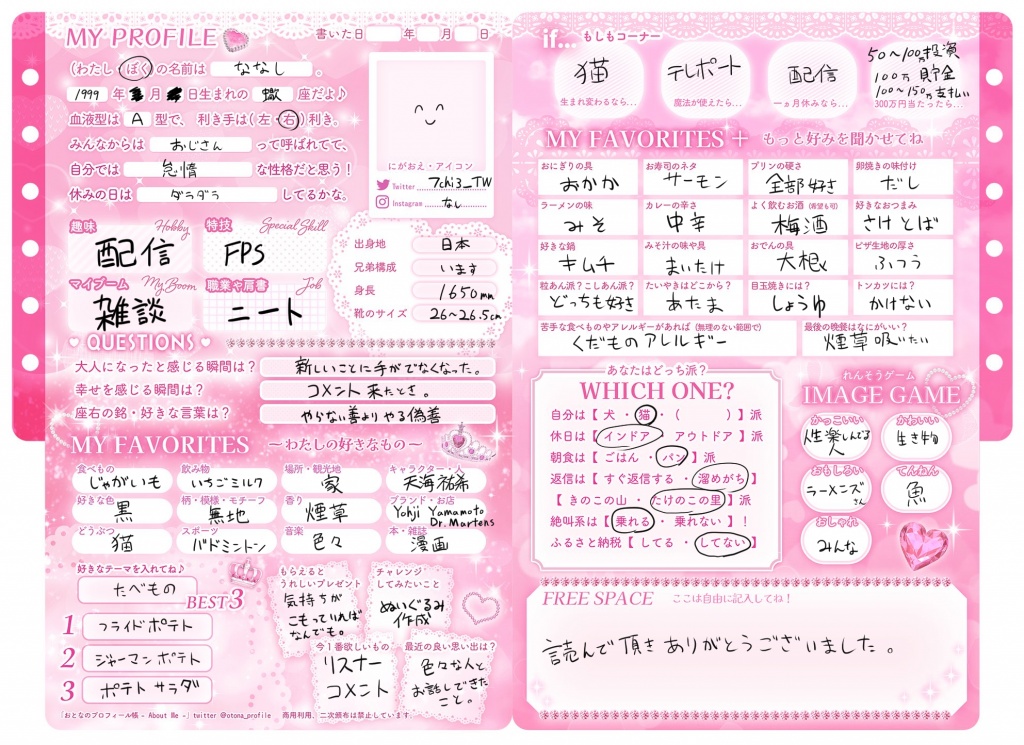 MY PROFILE
書いた日 年 月 日
(わたし・ぼく)の名前は ななし 。
1999 年 月 日生まれの 蠍 座だよ♪
血液型は A 型で、利き手は(左・右)利き。
みんなからは おじさん って呼ばれてて、
自分では 怠惰 な性格だと思う!
休みの日は ダラダラ してるかな。
にがおえ・アイコン
Twitter 7chi3_TW
Instagram なし
趣味 Hobby
配信
特技 Special Skill
FPS
マイブーム My Boom
雑談
職業や肩書 Job
ニート
出身地 日本
兄弟構成 います
身長 1650mm
靴のサイズ 26~26.5cm
QUESTIONS
大人になったと感じる瞬間は? 新しいことに手がでなくなった。
幸せを感じる瞬間は? コメント来たとき。
座右の銘・好きな言葉は? やらない善よりやる偽善
MY FAVORITES ~わたしの好きなもの~
食べもの 飲み物 場所・観光地 キャラクター・人
じゃがいも いちごミルク 家 天海祐希
好きな色 柄・模様・モチーフ 香り ブランド・お店
黒 無地 煙草 Yohji Yamamoto
Dr.Martens
どうぶつ スポーツ 音楽 本・雑誌
猫 バドミントン 色々 漫画
好きなテーマを入れてね♪
たべもの
BEST3
1 フライドポテト
2 ジャーマンポテト
3 ポテトサラダ
もらえると
うれしいプレゼント
気持ちが
こもっていれば
なんでも。
チャレンジ
してみたいこと
ぬいぐるみ
作成
今1番欲しいもの
リスナー
コメント
最近の良い思い出は?
色々な人と
お話しできた
こと。
「おとなのプロフィール帳 - About Me -」twitter @otona_profile 商用利用、二次頒布は禁止しています。
if... もしもコーナー
猫
生まれ変わるなら...
テレポート
魔法が使えたら...
配信
一ヵ月休みなら...
50~100万投資
100万貯金
100~150万支払い
300万円当たったら...
MY FAVORITES + もっと好みを聞かせてね
おにぎりの具 お寿司のネタ プリンの硬さ 卵焼きの味付け
おかか サーモン 全部好き だし
ラーメンの味 カレーの辛さ よく飲むお酒(希望も可) 好きなおつまみ
みそ 中辛 梅酒 さけとば
好きな鍋 みそ汁の味や具 おでんの具 ピザ生地の厚さ
キムチ まいたけ 大根 ふつう
粒あん派?こしあん派? たいやきはどこから? 目玉焼きには? トンカツには?
どっちも好き あたま しょうゆ かけない
苦手な食べものやアレルギーがあれば(無理のない範囲で)
くだものアレルギー
最後の晩餐はなにがいい?
煙草吸いたい
あなたはどっち派?
WHICH ONE?
自分は【 犬 ・ 猫 ・( )】派
休日は【 インドア アウトドア 】派
朝食は【 ごはん ・ パン 】派
返信は【 すぐ返信する ・ 溜めがち 】
【 きのこの山 ・ たけのこの里 】派
絶叫系は【 乗れる ・ 乗れない 】!
ふるさと納税【 してる ・ してない 】
れんそうゲーム
IMAGE GAME
かっこいい
性楽しんでる
人
かわいい
生き物
おもしろい
ラーメンズ
さん
てんねん
魚
おしゃれ
みんな
FREE SPACE ここは自由に記入してね!
読んで頂きありがとうございました。